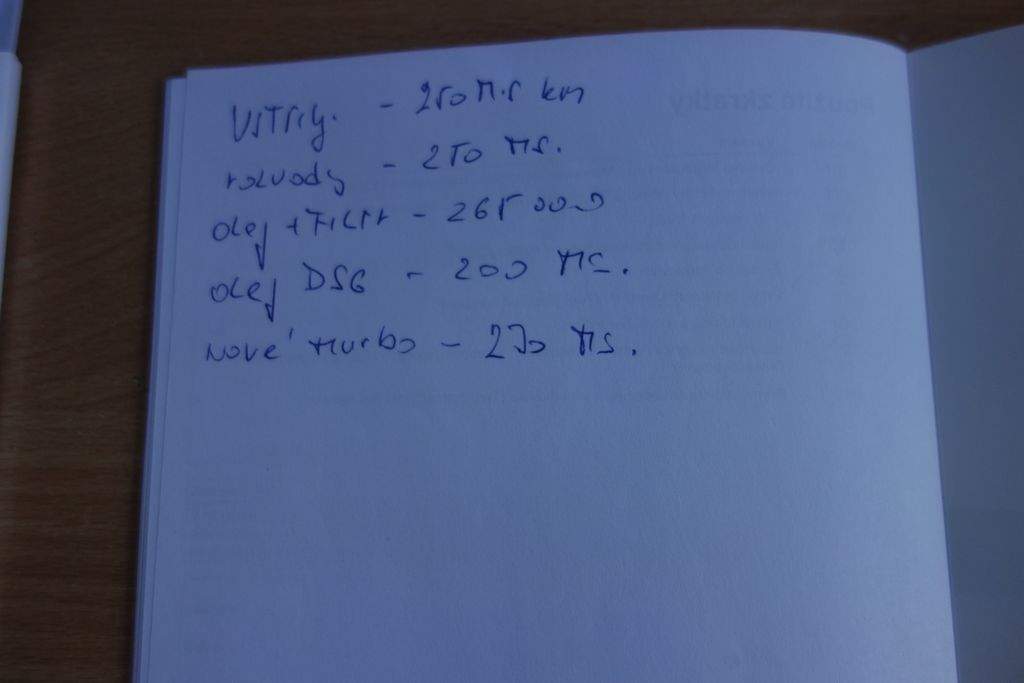 VSTŘIKY. - 250 TIS km
rozvody - 250 TIS.
olej + FILTR - 265 000
olej DSG - 200 TIS.
nové turbo - 270 TIS.